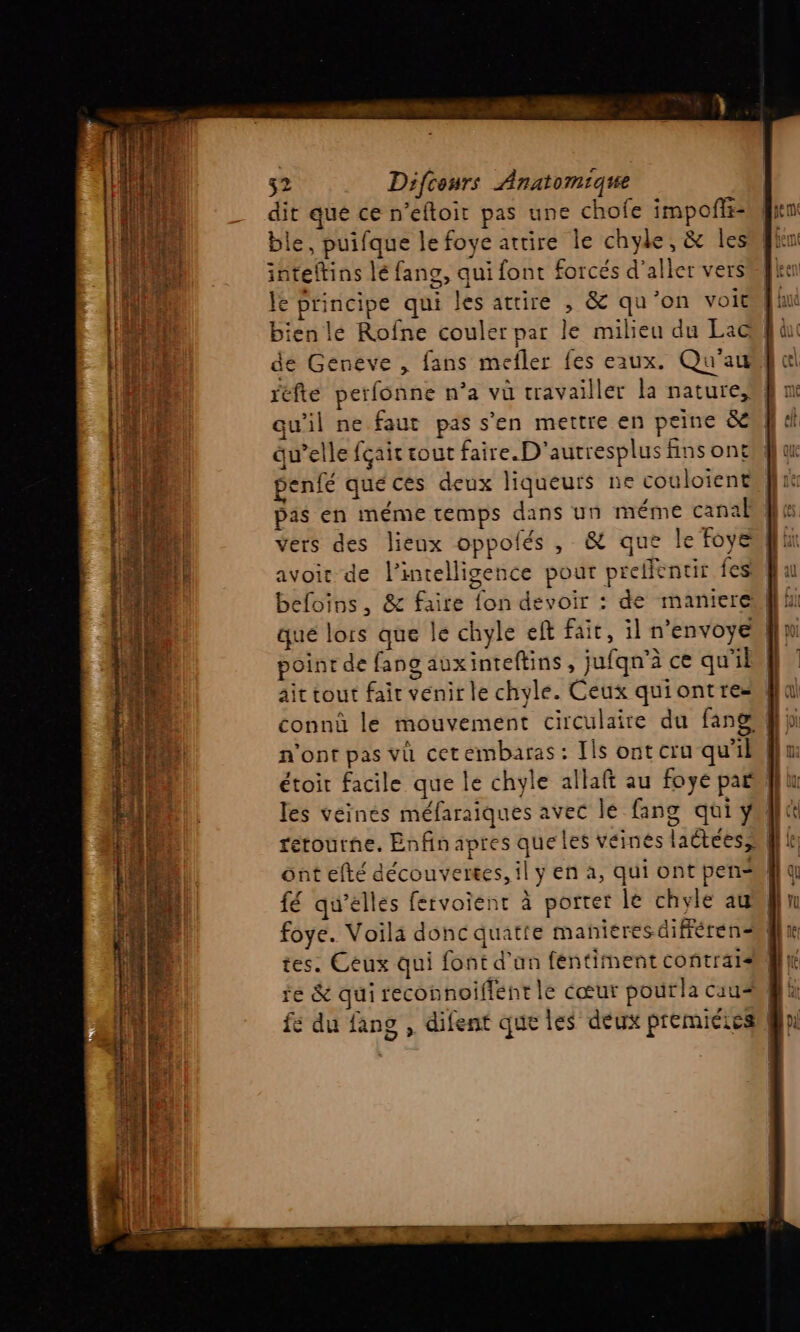 52 Diſcours Anatomique
dit que ce n'eſtoit pas une choſe impoſſi-
ble, puiſque le foye attire le chyle, & les
inteſtins lé ſang, qui ſont forcés d'aller vers
le principe qui les attire , & qu'on voit
bien le Roſne couler par le milieu du Lac
de Geneve , ſans meſler ſes eaux. Qu'au
reſte perſonne n'a vû travailler la nature,
qu'il ne faut pas s'en mettre en peine &
qu'elle ſçait tout faire. D'autres plus fins ont
penſé que ces deux liqueurs ne couloient
pas en méme temps dans un méme canal
vers des lieux oppoſés , & que le foye
avoit de l'intelligence pour preſſentir ſes
beſoins, & faire ſon devoir : de maniere
que lors que le chyle eſt fait, il n'envoye
point de ſang aux inteſtins, juſqn'à ce qu'il
ait tout fait venir le chyle. Ceux qui ont re-
connû le mouvement circulaire du ſang
n'ont pas vû cet embaras : Ils ont cru qu'il
étoit facile que le chyle allaſt au foye par
les veines méſaraiques avec le ſang qui y
retourne. Enfin apres que les veines lactées,
ont eſté découvertes, il y en a, qui ont pen-
ſé qu'elles ſervoient à porter le chyle au
foye. Voila donc quatre manieres différen-
tes. Ceux qui ſont d'un ſentiment contrai-
re & qui reconnoiſſent le cœur pour la cau-
ſe du ſang , diſent que les deux premiéres